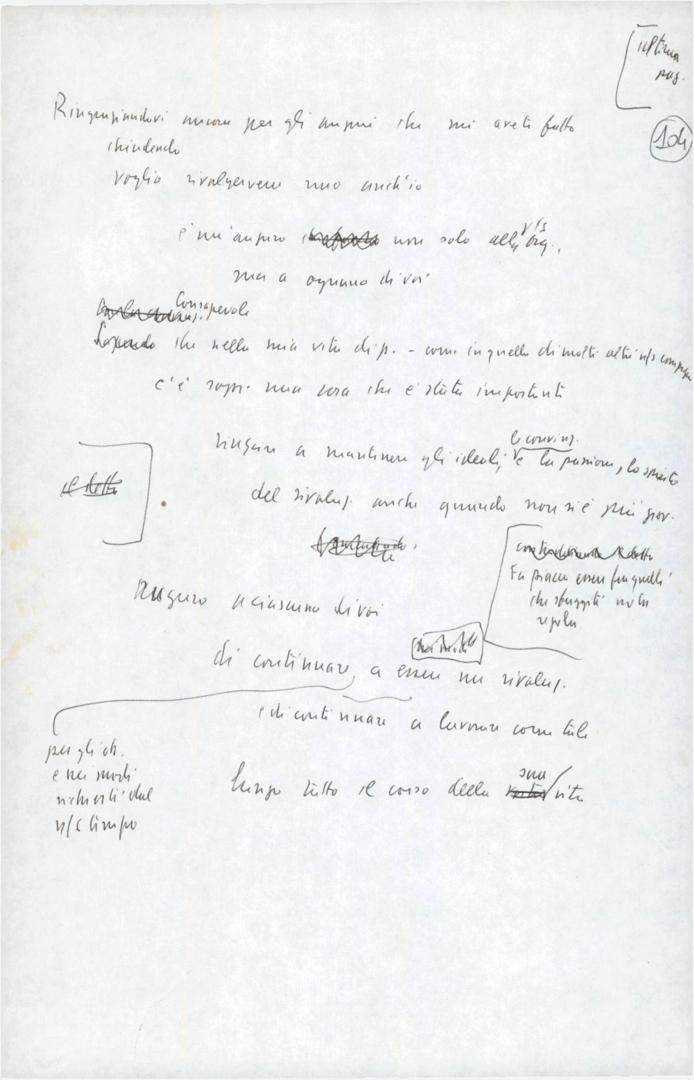 ultima
pag.
104
Ringraziandovi ancora per gli auguri che mi avete fatto
chiudendo
voglio rivolgervene uno anch'io
è un augurio non solo alla v/s org.,
ma a ognuno di voi
Consapevole
Sapendo che nella mia vita di p. - come in quella di molti altri n/s compagni
c'è sopr. una cosa che è stata importante
riuscire a mantenere gli ideali, le convinz. e la passione, lo spirito
del rivoluz. anche quando non si è più giov.
il detto
Fa piacere essere fra quelli
che sfuggiti a la
regola
Auguro a ciascuno di voi
di continuare, a essere un rivoluz.
e di continuare a lavorare come tale
per gli ob.
e nei modi
richiesti dal
n/s tempo
lungo tutto il corso della sua vita